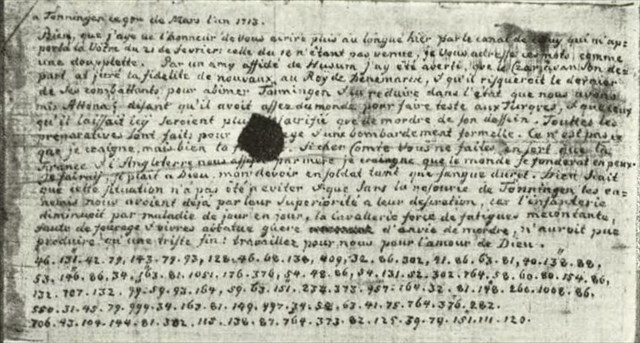 a Tonningen ce 9me de Mars l'an 1713.
Bien, que j'aye eu l'honneur de vous ecrire plus au longue hier par le canal de qui m'ap=
porta la Votre du 21 de fevrier: celle du 18 n'étant pas venue, je Vous adresse ces mots, comme
une douplette. Par un amy affidé de Husum j'ay été averti, que le Czar avant son de=
part at juré la fidelité de nouveaux au Roy de Denemarck, & qu'il risqueroit le dernier
de ses combattants pour abimer Tonningen & la reduire dans l'etat que nous avons
mis Altona; disant qu'il avoit assez du monde pour faire teste aux Turques, & que ceux
qu'il laissait icy seroient plus sacrifié que de mordre de son dessein. Touttes les
preparatives sont faits pour d'une bombardement formelle. Ce n'est pas ce
que je craigne, mais bien ta Si cher Comte vous ne faites en sort que la
France & l'Angleterre nous par mer je craigne que le monde se fonderat en peux.
Je fairais, s'il plait a Dieu, mon devoir en soldat tant que sangue duret. Dieu sait
que cette situation n'a pas été a eviter & que sans la resourie de Tonningen les en=
nemis nous avoient déja par leur superiorité a leur discretion, car l'infanterie
diminuoit par maladie de jour en jour, la Cavallerie force de fatigues mecontante,
faute de fourage & vivres abbatue guere d'envie de mordre, n'auroit pue
produire qu'une triste fin: travaillez pour nous pour l'amour de Dieu.
46. 131. 42. 79. 143. 79. 93, 128. 46. 68. 138, 409, 32. 86. 302, 41. 86. 63. 81, 40. 138. 88,
53, 146. 86, 34. 63. 81. 1051. 176. 376, 54. 48. 86, 54, 131. 52. 302. 764. 58. 60. 80. 154. 86,
132. 707. 132. 79. 59. 93. 164, 59. 63. 151. 272. 373. 457. 164. 32. 81. 148. 266. 1008. 86,
550. 31. 45. 79. 999. 34. 163. 81. 149. 497. 34. 52. 63. 41. 75. 764. 376. 282.
706. 43. 104. 144. 81. 302. 115. 138. 87. 764. 373. 82. 125. 39. 79. 151. 111. 120.